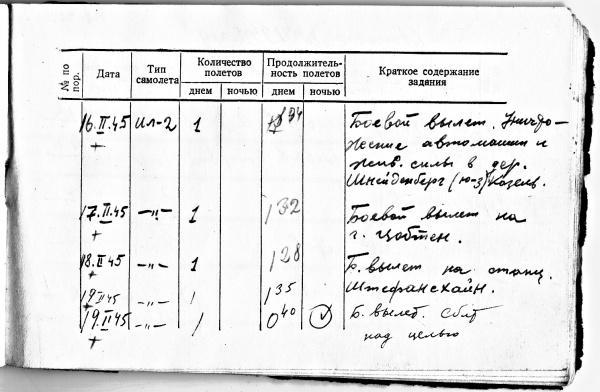 № по пор.
Дата
Тип самолета
Количество полетов
Продолжительность полетов
Краткое содержание задания
днем ночью днем ночью
16.II.45 Ил-2 1 1 34 Боевой вылет. Уничто-
жение автомашин и
жив. силы в дер.
Шнейденберг (ю-з)
17.II.45 —„— 1 1 32 Боевой вылет на
г. Цобтен.
18.II.45 —„— 1 1 28 Б. вылет на станц.
Штефансхайн.
19.II.45 —„— 1 1 35
19.II.45 —„— 1 0 40 Б. вылет. Сбит
над целью